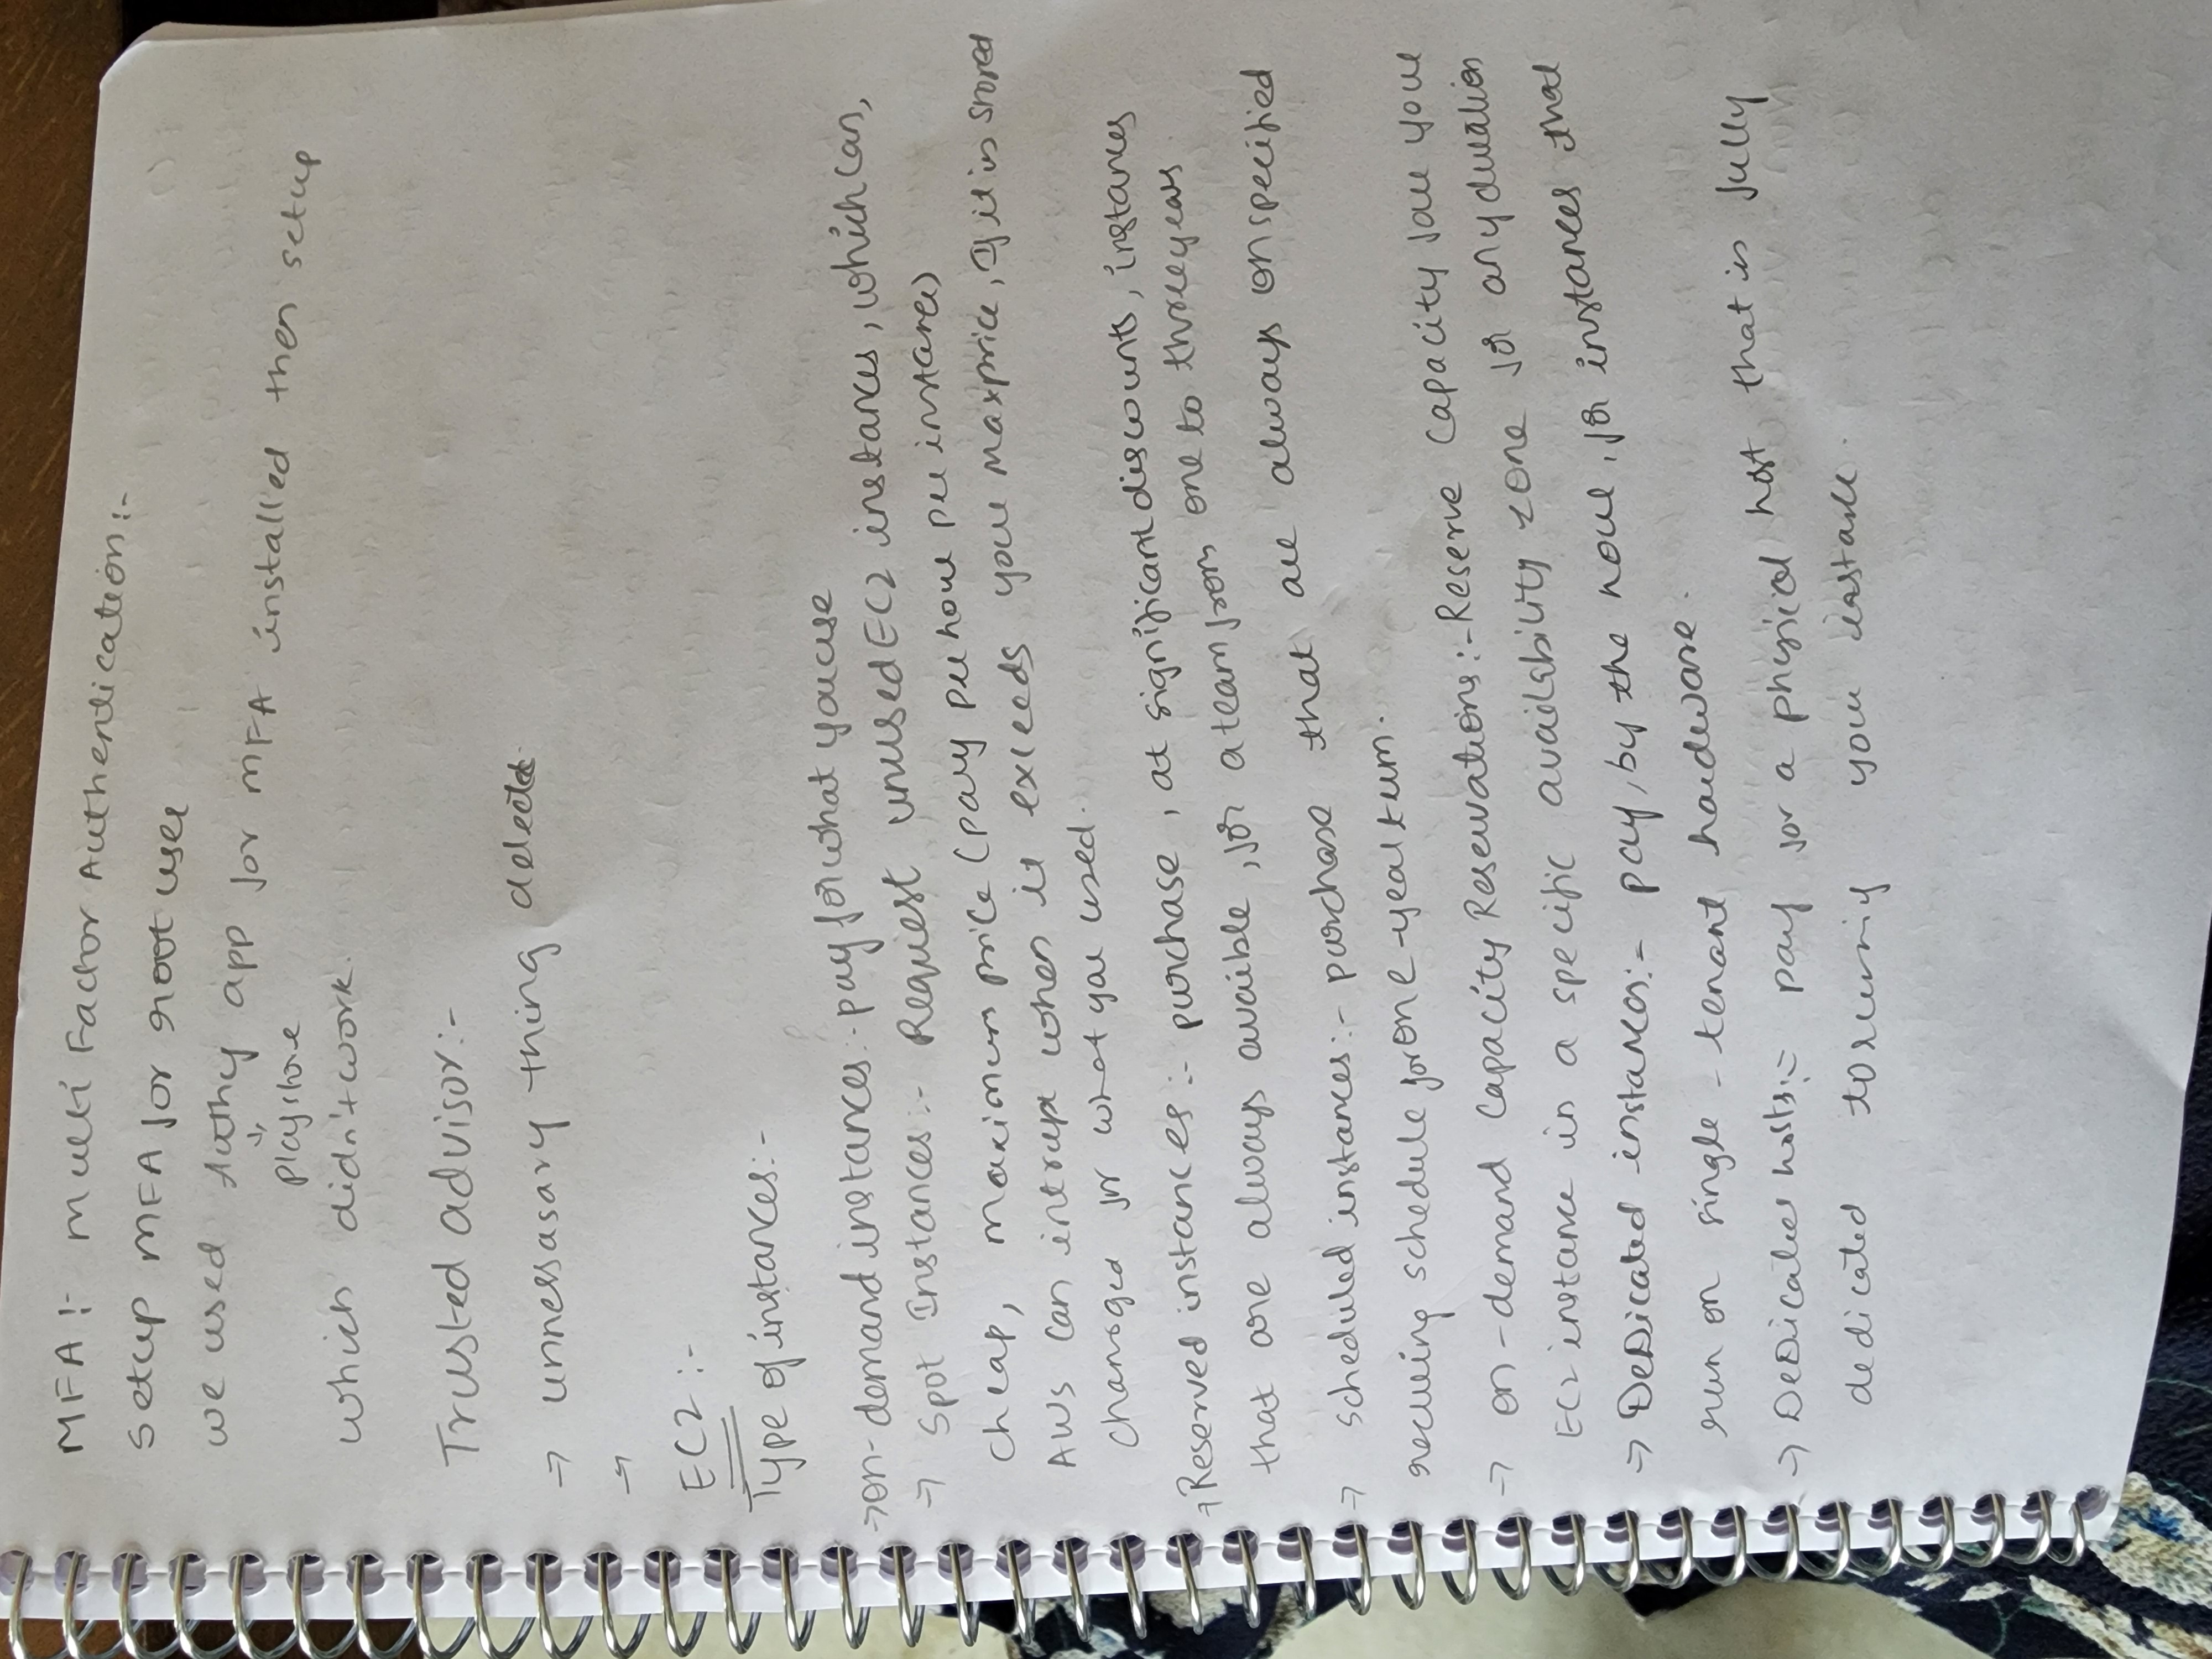 MFA :- Multi Factor Authentication :-
Setup MFA for root user
we used Authy app for MFA installed then setup
playstore
which didn't work.
Trusted advisor :-
→ unnessasary thing delected
→
EC2 :-
Type of instances :-
→ on-demand instances :- pay for what you use
→ Spot Instances :- Request unused EC2 instances, which can,
cheap, maximum price (pay per hour per instance)
AWS can intrupt when it exceeds your maxprice, If it is stored
charged for what you used.
→ Reserved instances :- purchase, at significant discounts, instances
that are always avaible, for a team from one to three years
→ scheduled instances :- purchase that are always on specified
recurring schedule for one-year term.
→ on-demand Capacity Reservations :- Reserve Capacity your
EC2 instance in a specific availability zone for any duration
→ DeDicated instances :- pay, by the hour, for instances that
run on single-tenant hardware.
→ DeDicated hosts :- pay for a physical host that is fully
dedicated to your instance.